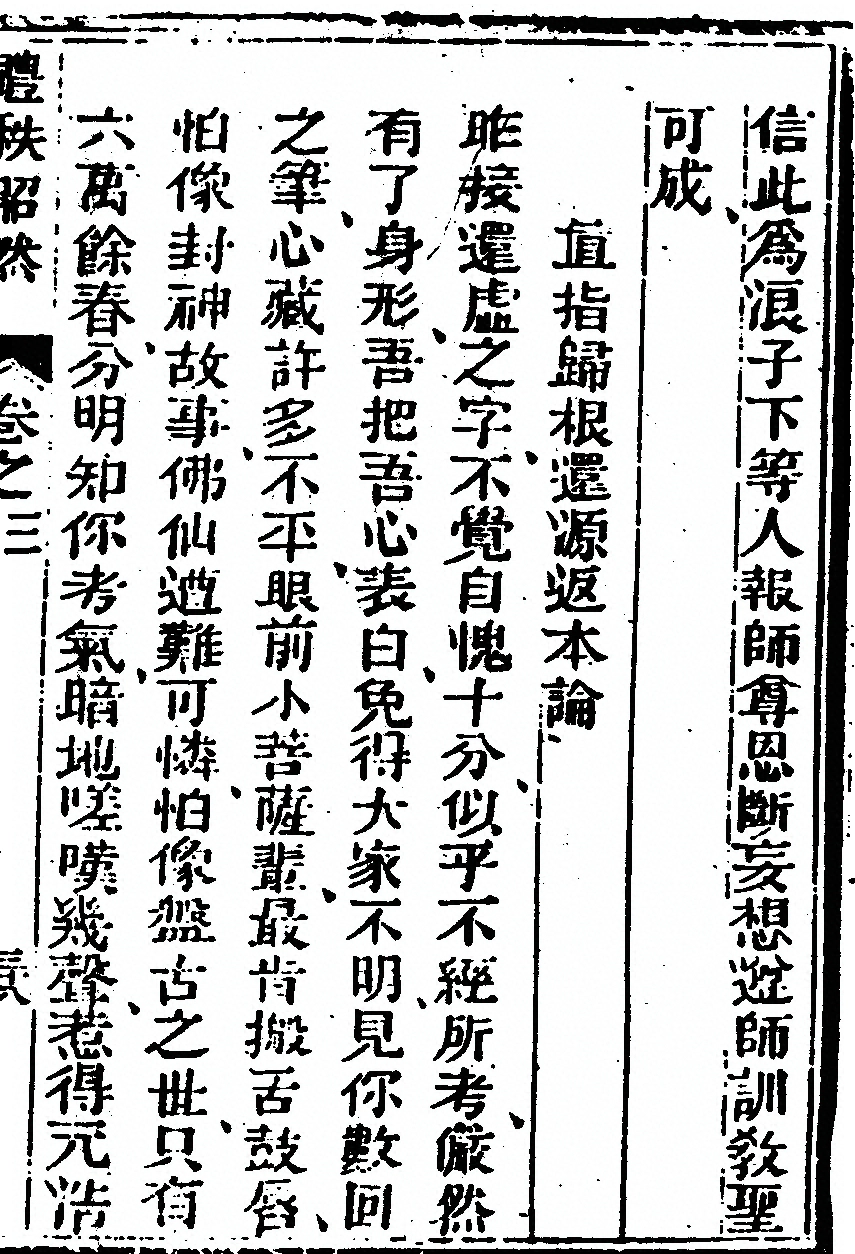 信此爲浪子下等人報師尊恩斷妄想遵師訓教聖
可成
直指歸根還源返本論
昨接還虛之字不覺自愧十分似乎不經所考儼然
有了身形吾把吾心表白免得大家不明見你數回
之筆心藏許多不平眼前小菩薩輩最肯搬舌鼓唇
怕像封神故事佛仙遭難可憐怕像盤古之世只有
六萬餘春分明知你考氣暗地嗟嘆幾聲惹得元浩
體秩昭然 卷之三